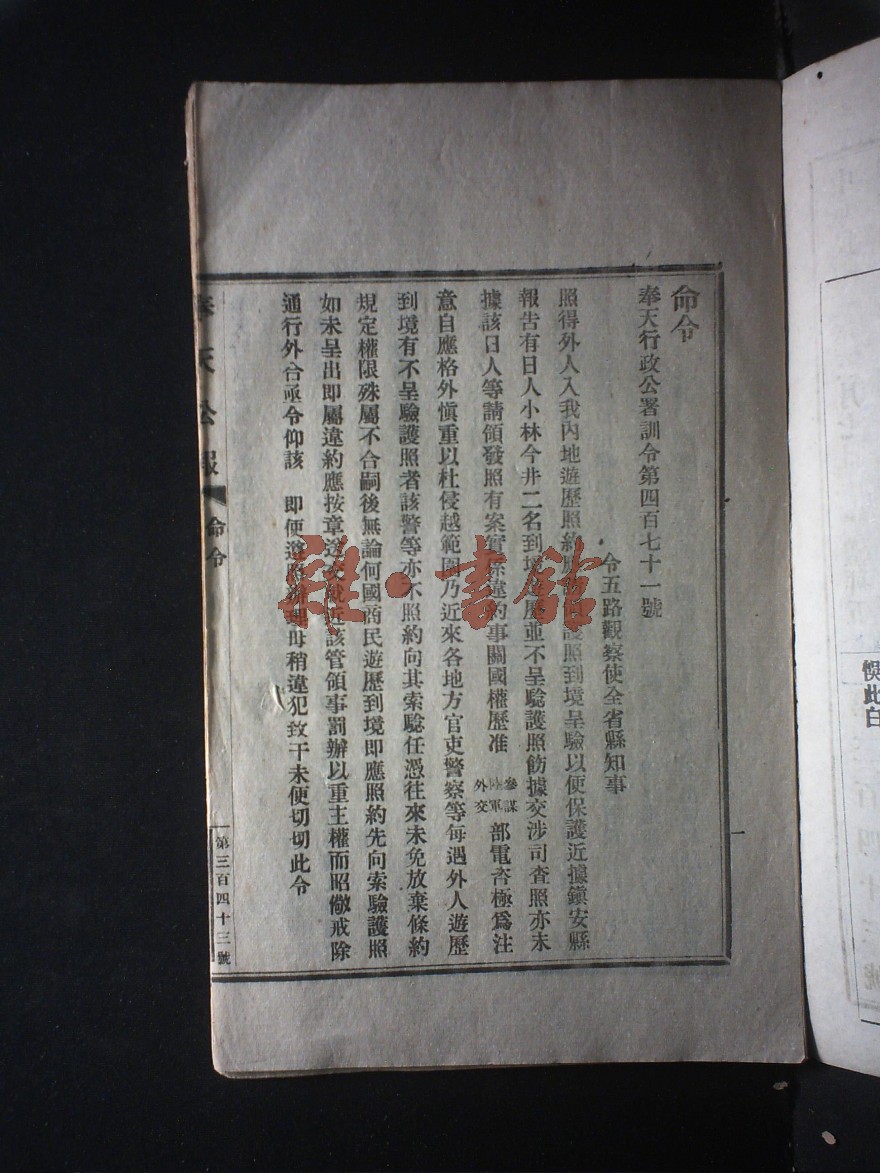 命令
奉天行政公署訓令第四百七十一號
令五路觀察使全省縣知事
照得外人入我內地遊歷照約應護照到境呈驗以便保護近據鎮安縣
報告有日人小林今井二名到境遊歷並不呈驗護照飭據交涉司查照亦未
據該日人等請領發照有案實係違約事關國權歷准 參謀 陸軍 外交 部電咨極爲注
意自應格外愼重以杜侵越範圍乃近來各地方官吏警察等每遇外人遊歷
到境有不呈驗護照者該警等亦不照約向其索驗任憑往來未免放棄條約
規定權限殊屬不合嗣後無論何國商民遊歷到境即應照約先向索驗護照
如未呈出即屬違約應按章送交就近該管領事罰辦以重主權而昭儆戒除
通行外合亟令仰該 即便遵照辦理毋稍違犯致干未便切切此令
奉天公報
命令
第三百四十三號
雜·書館
悞此白